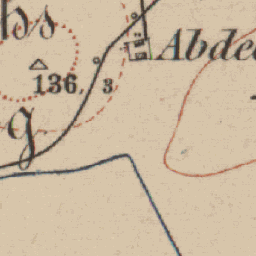 hs
Abde
136,3
g